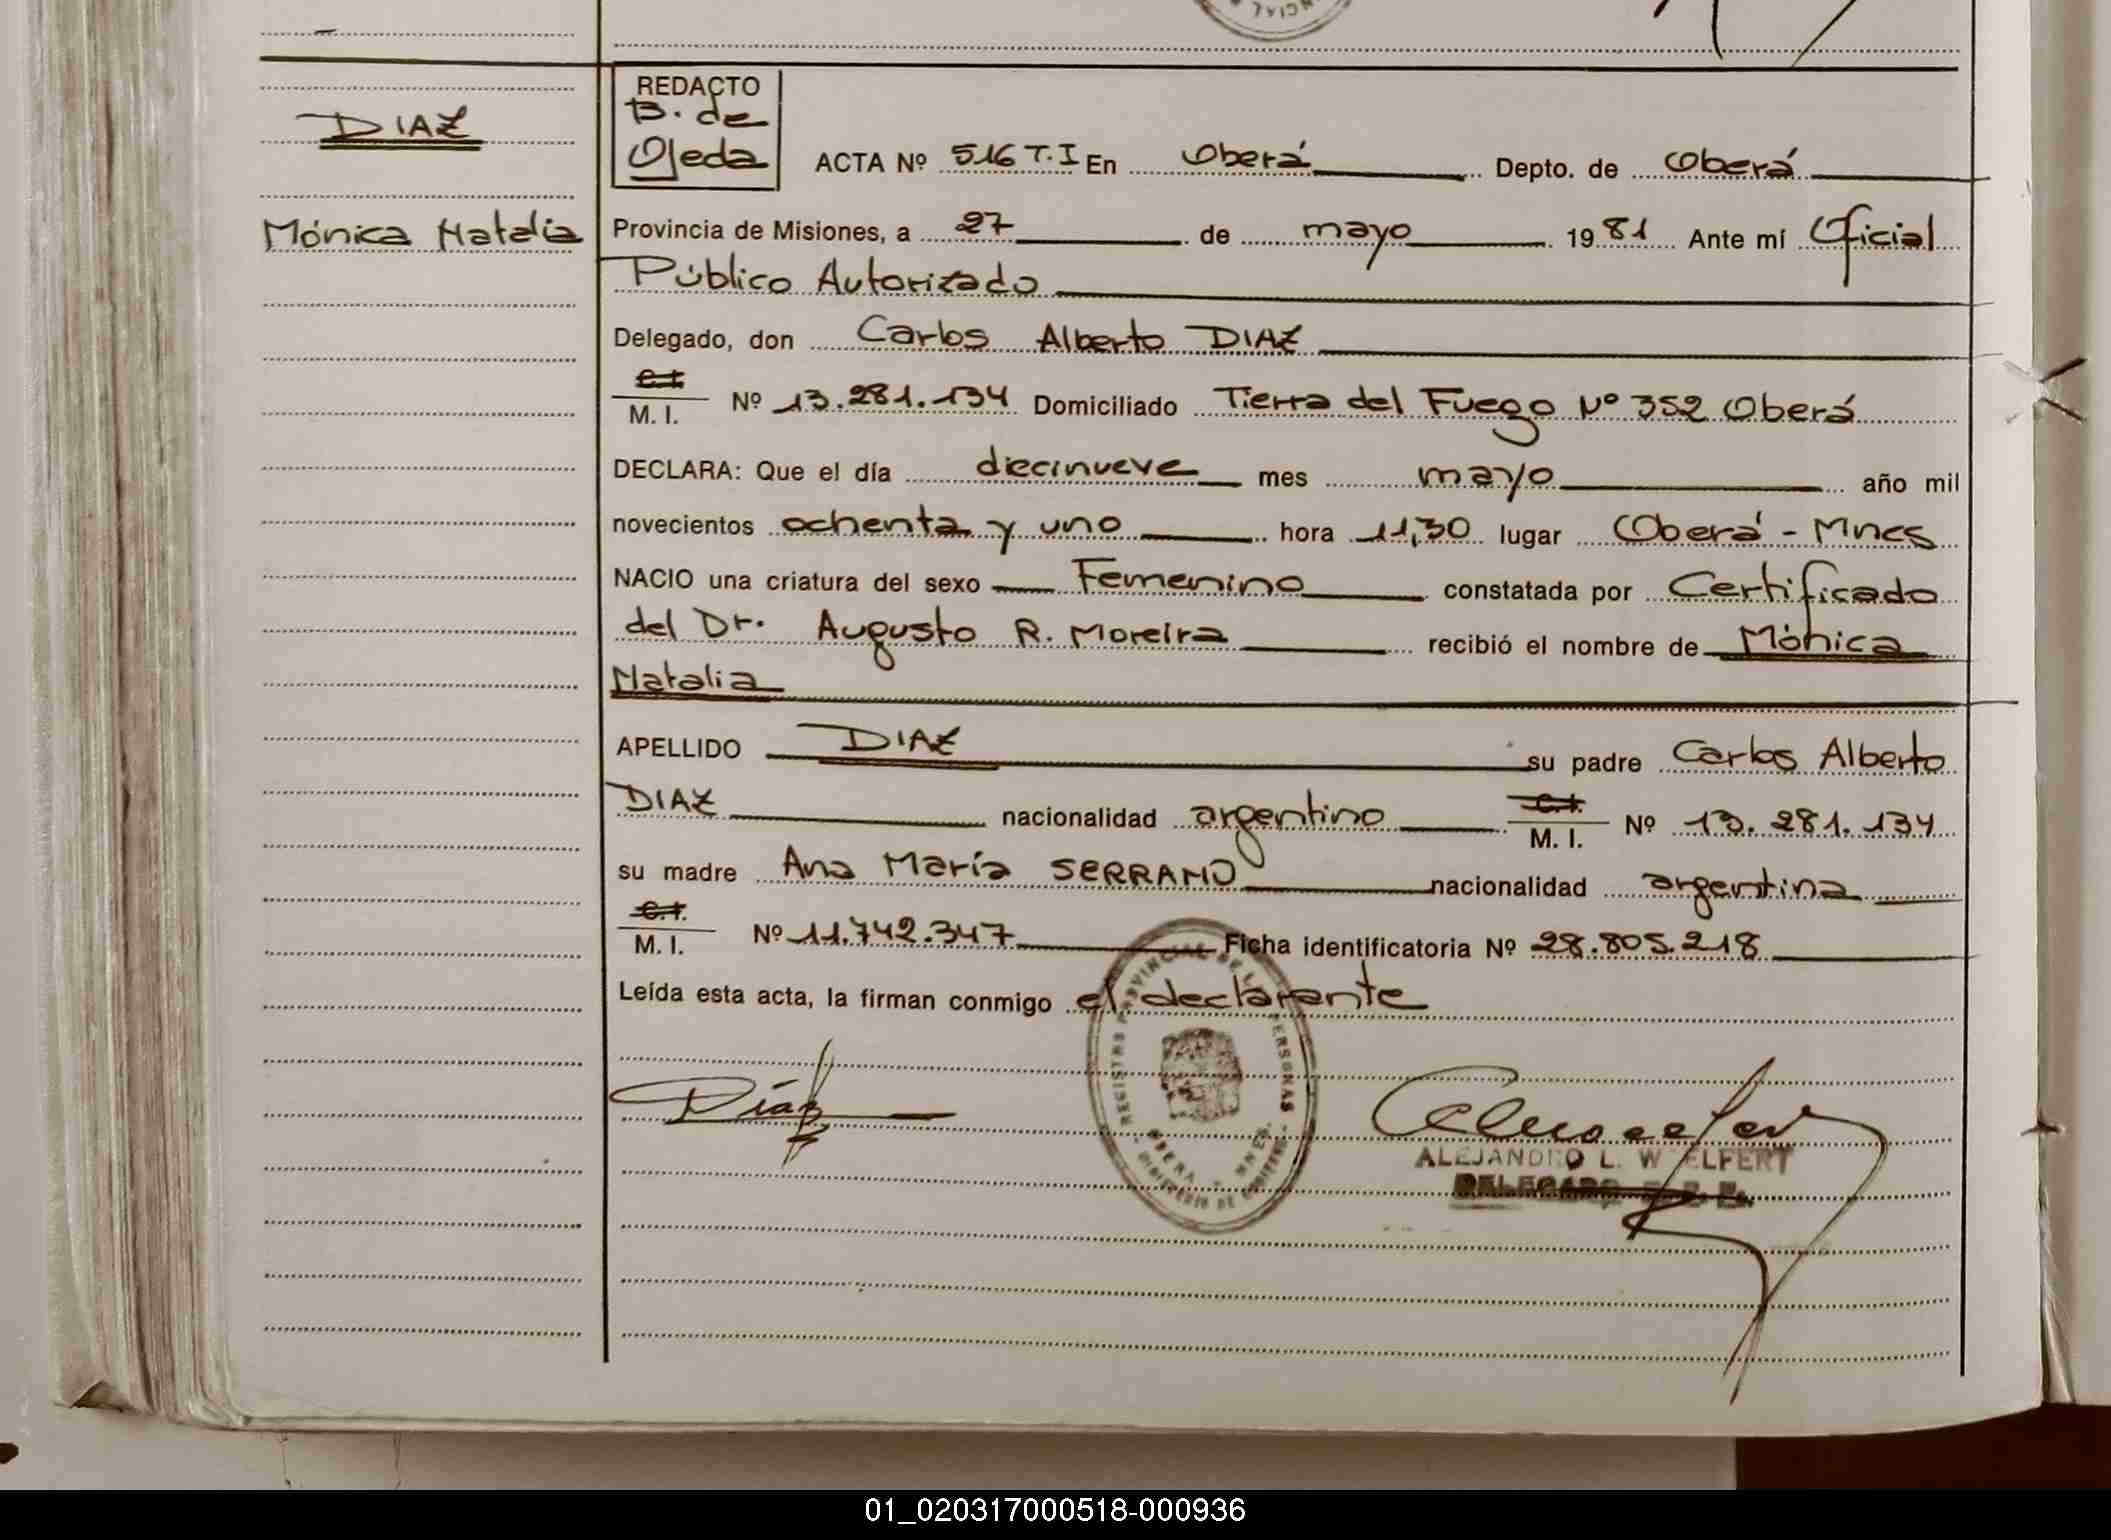 DIAZ
Mónica Natalia
REDACTO
B. de
Ojeda
ACTA Nº 516 T.I En Oberá Depto. de Oberá
Provincia de Misiones, a 27 de mayo 1981 Ante mí Oficial
Público Autorizado
Delegado, don Carlos Alberto DIAZ
C.I.
M. I. Nº 13.281.134 Domiciliado Tierra del Fuego Nº 352 Oberá
DECLARA: Que el día diecinueve mes mayo año mil
novecientos ochenta y uno hora 11,30 lugar Oberá - Mnes
NACIO una criatura del sexo Femenino constatada por Certificado
del Dr. Augusto R. Moreira recibió el nombre de Mónica
Natalia
APELLIDO DIAZ su padre Carlos Alberto
DIAZ nacionalidad argentino C.I. M. I. Nº 13.281.134
su madre Ana María SERRANO nacionalidad argentina
C.I.
M. I. Nº 11.742.347 Ficha identificatoria Nº 28.805.218
Leída esta acta, la firman conmigo el declarante
REGISTRO PROVINCIAL DE LAS PERSONAS
OBERA - MNES.
MINISTERIO DE GOBIERNO
Díaz
ALEJANDRO L. WOELFERT
DELEGADO
01_020317000518-000936